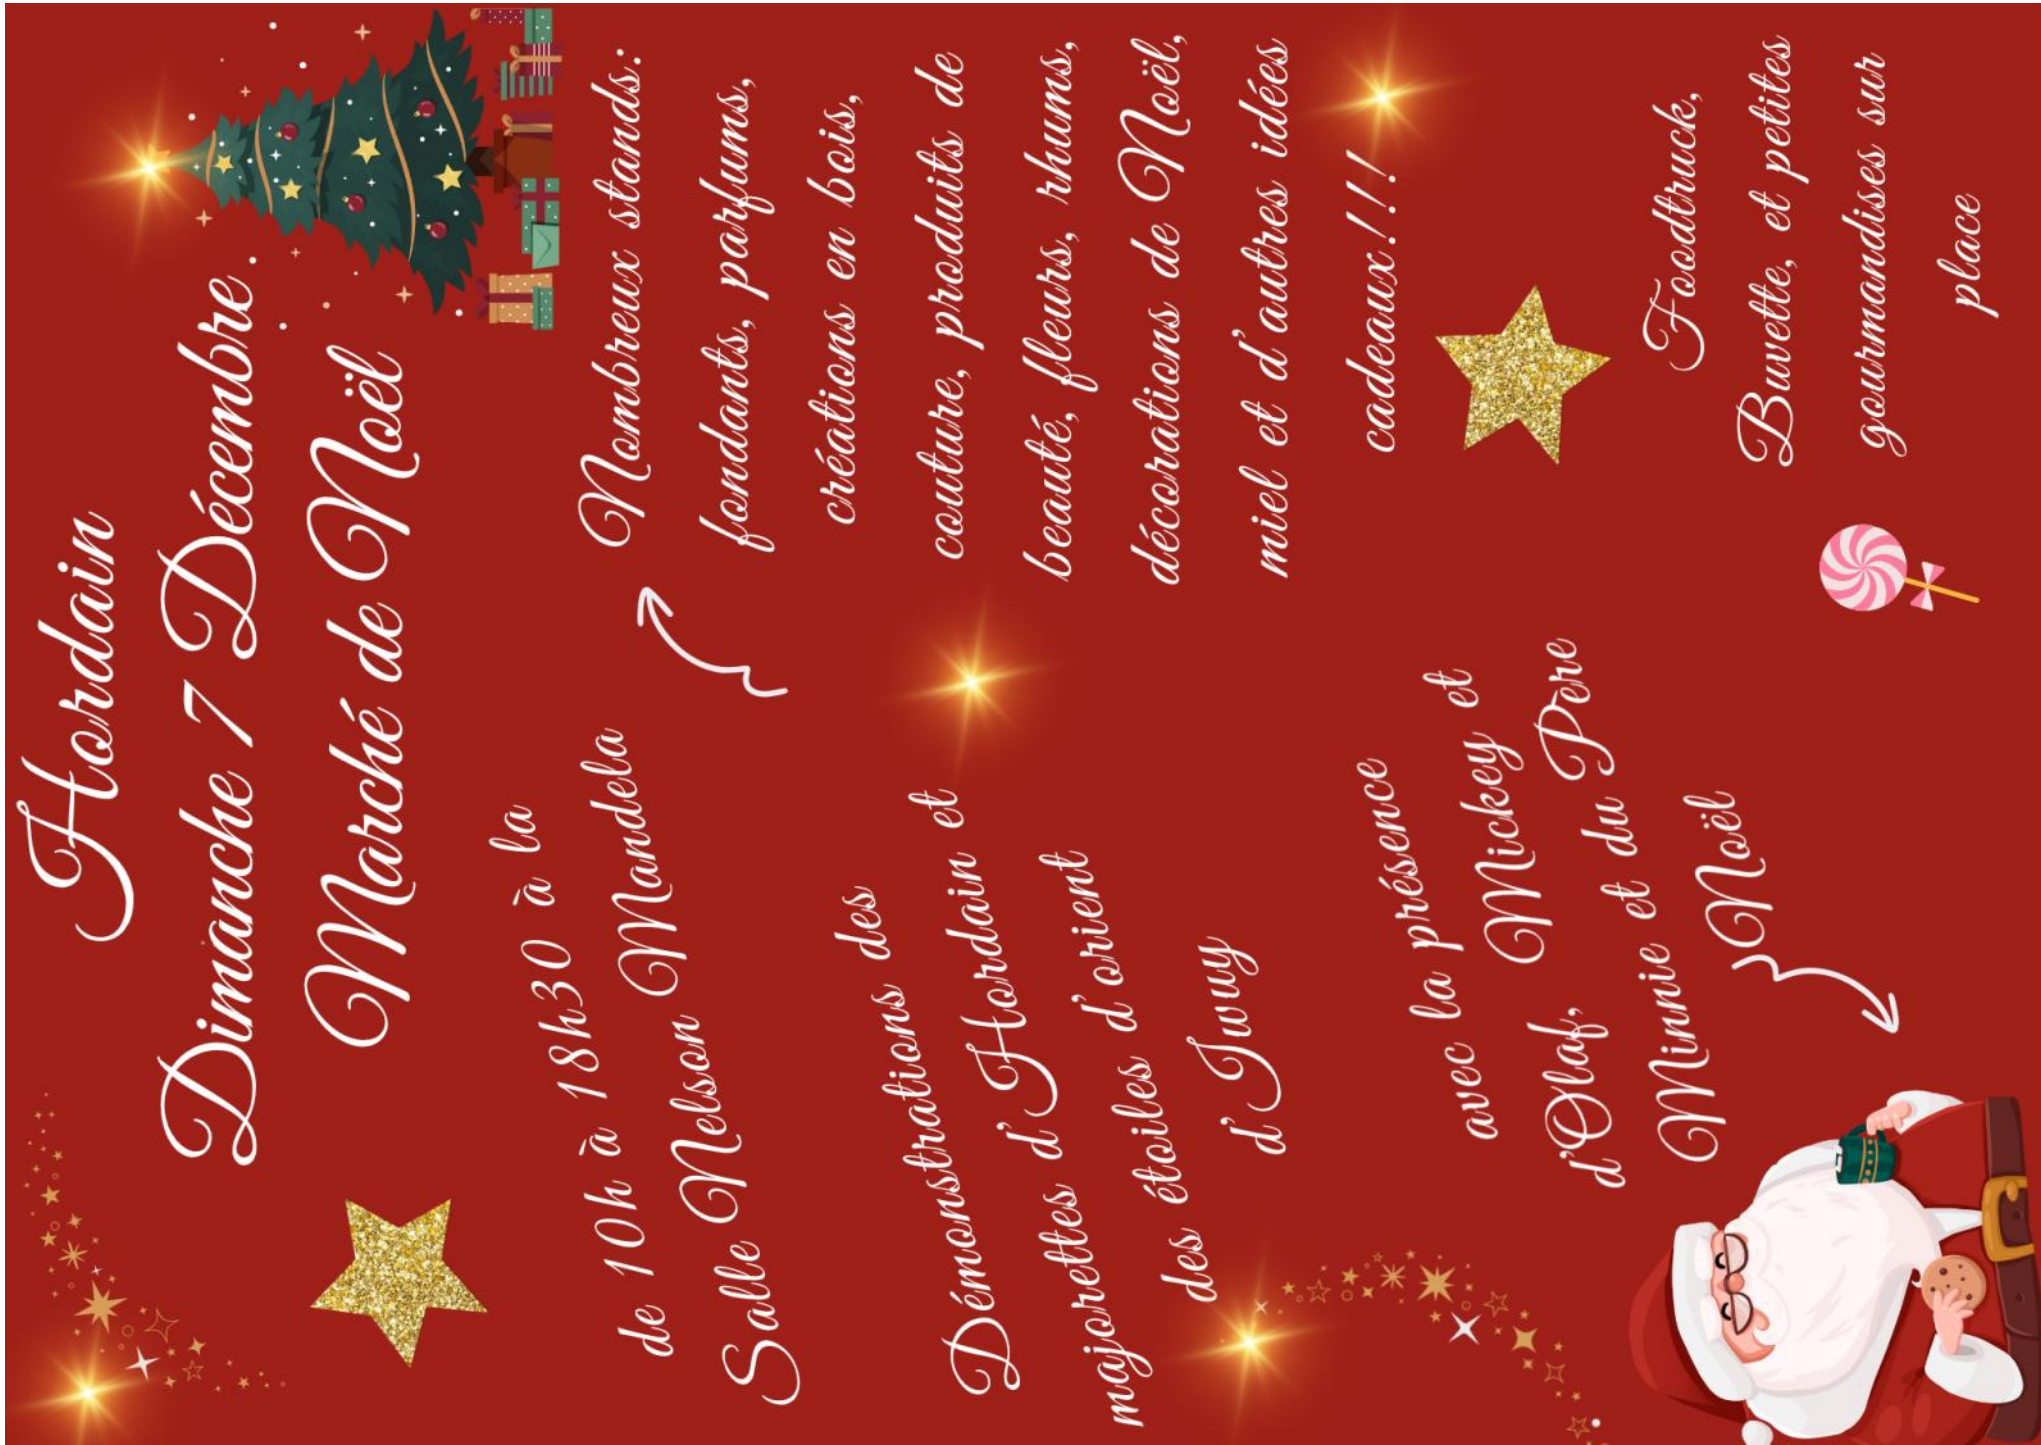 Hordain
Dimanche 7 Décembre
Marché de Noël
de 10h à 18h30 à la
Salle Nelson Mandela
Démonstrations des
majorettes d'Hordain et
des étoiles d'orient
d'Iwuy
avec la présence
d'Olaf, Mickey et
Minnie et du Père
Noël
Nombreux stands:
fondants, parfums,
créations en bois,
couture, produits de
beauté, fleurs, rhums,
décorations de Noël,
miel et d'autres idées
cadeaux!!!
Foodtruck,
Buvette, et petites
gourmandises sur
place